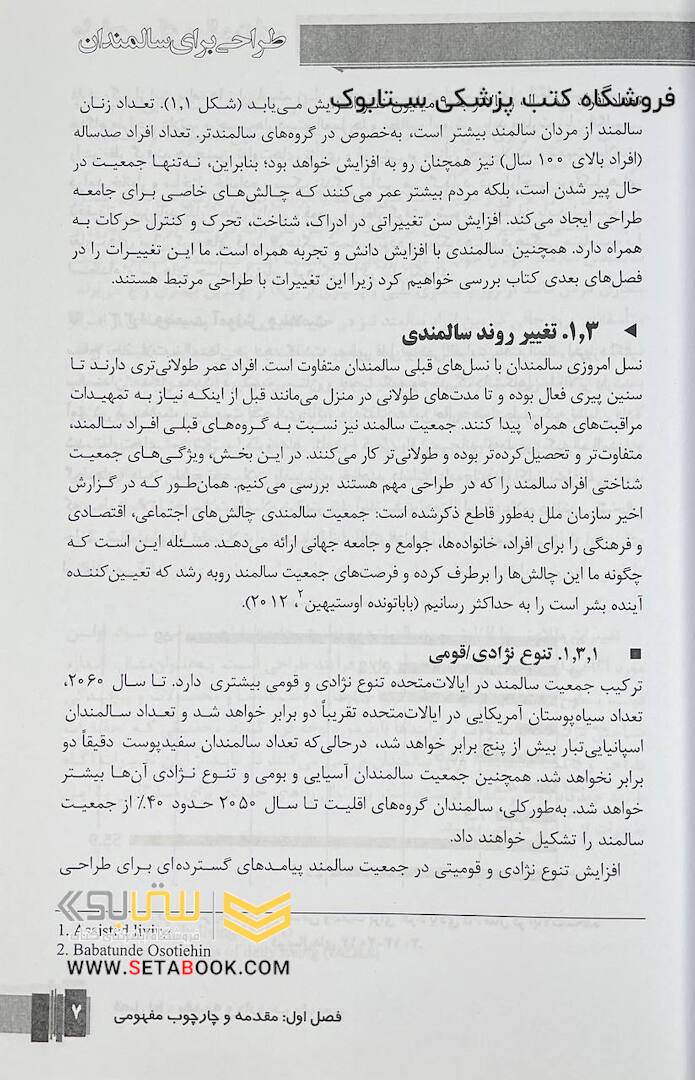 طراحی برای سالمندان
فروشگاه کتب پزشکی ستابوک
می‌یابد (شکل ۱٫۱). تعداد زنان
سالمند از مردان سالمند بیشتر است، به‌خصوص در گروه‌های سالمندتر. تعداد افراد صدساله
(افراد بالای ۱۰۰ سال) نیز همچنان رو به افزایش خواهد بود؛ بنابراین، نه‌تنها جمعیت در
حال پیر شدن است، بلکه مردم بیشتر عمر می‌کنند که چالش‌های خاصی برای جامعه
طراحی ایجاد می‌کند. افزایش سن تغییراتی در ادراک، شناخت، تحرک و کنترل حرکات به
همراه دارد. همچنین سالمندی با افزایش دانش و تجربه همراه است. ما این تغییرات را در
فصل‌های بعدی کتاب بررسی خواهیم کرد زیرا این تغییرات با طراحی مرتبط هستند.
◄ ۱٫۳. تغییر روند سالمندی
نسل امروزی سالمندان با نسل‌های قبلی سالمندان متفاوت است. افراد عمر طولانی‌تری دارند تا
سنین پیری فعال بوده و تا مدت‌های طولانی در منزل می‌مانند قبل از اینکه نیاز به تمهیدات
مراقبت‌های همراه۱ پیدا کنند. جمعیت سالمند نیز نسبت به گروه‌های قبلی افراد سالمند،
متفاوت‌تر و تحصیل‌کرده‌تر بوده و طولانی‌تر کار می‌کنند. در این بخش، ویژگی‌های جمعیت
شناختی افراد سالمند را که در طراحی مهم هستند بررسی می‌کنیم. همان‌طور که در گزارش
اخیر سازمان ملل به‌طور قاطع ذکرشده است: جمعیت سالمندی چالش‌های اجتماعی، اقتصادی
و فرهنگی را برای افراد، خانواده‌ها، جوامع و جامعه جهانی ارائه می‌دهد. مسئله این است که
چگونه ما این چالش‌ها را برطرف کرده و فرصت‌های جمعیت سالمند روبه رشد که تعیین‌کننده
آینده بشر است را به حداکثر رسانیم (باباتونده اوستیهین۲، ۲۰۱۲).
■ ۱٫۳٫۱. تنوع نژادی/قومی
ترکیب جمعیت سالمند در ایالات‌متحده تنوع نژادی و قومی بیشتری دارد. تا سال ۲۰۶۰،
تعداد سیاه‌پوستان آمریکایی در ایالات‌متحده تقریباً دو برابر خواهد شد و تعداد سالمندان
اسپانیایی‌تبار بیش از پنج برابر خواهد شد، درحالی‌که تعداد سالمندان سفیدپوست دقیقاً دو
برابر نخواهد شد. همچنین جمعیت سالمندان آسیایی و بومی و تنوع نژادی آن‌ها بیشتر
خواهد شد. به‌طورکلی، سالمندان گروه‌های اقلیت تا سال ۲۰۵۰ حدود ۴۰٪ از جمعیت
سالمند را تشکیل خواهند داد.
افزایش تنوع نژادی و قومیتی در جمعیت سالمند پیامدهای گسترده‌ای برای طراحی
ستابوک
1. Assisted living
2. Babatunde Osotiehin
WWW.SETABOOK.COM
فصل اول: مقدمه و چارچوب مفهومی
۷